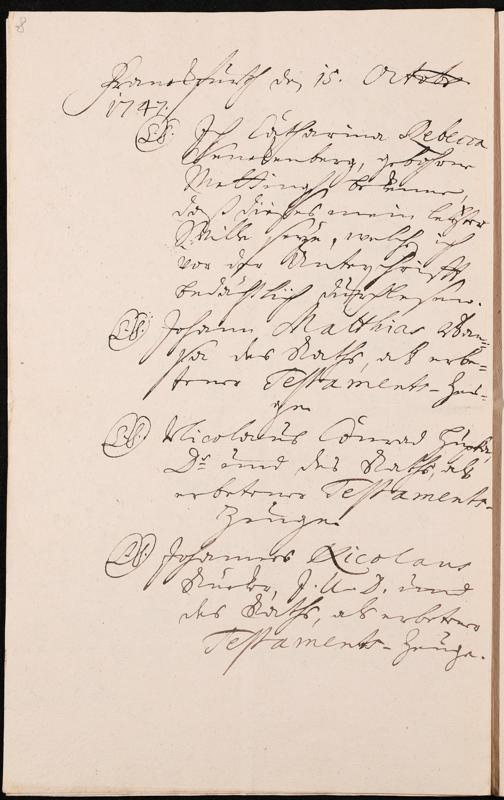 8
Franckfurth den 15. Octobr
1747.
(LS.) Ich Catharina Rebecca
Senckenberg, gebohrne
Mettingh bekenne,
daß dieses mein letzter
Wille seye, welchen ich
vor der Unterschrifft
bedächtlich durchlesen.
(LS.) Johann Matthias
des Raths, als erbe-
tener Testaments-Zeu-
ge
(LS.) Nicolaus Conrad
Dr und des Raths, als
erbetener Testaments-
Zeuge
(LS.) Johannes Nicolaus
J. U. D. und
des Raths, als erbetener
Testaments-Zeuge.